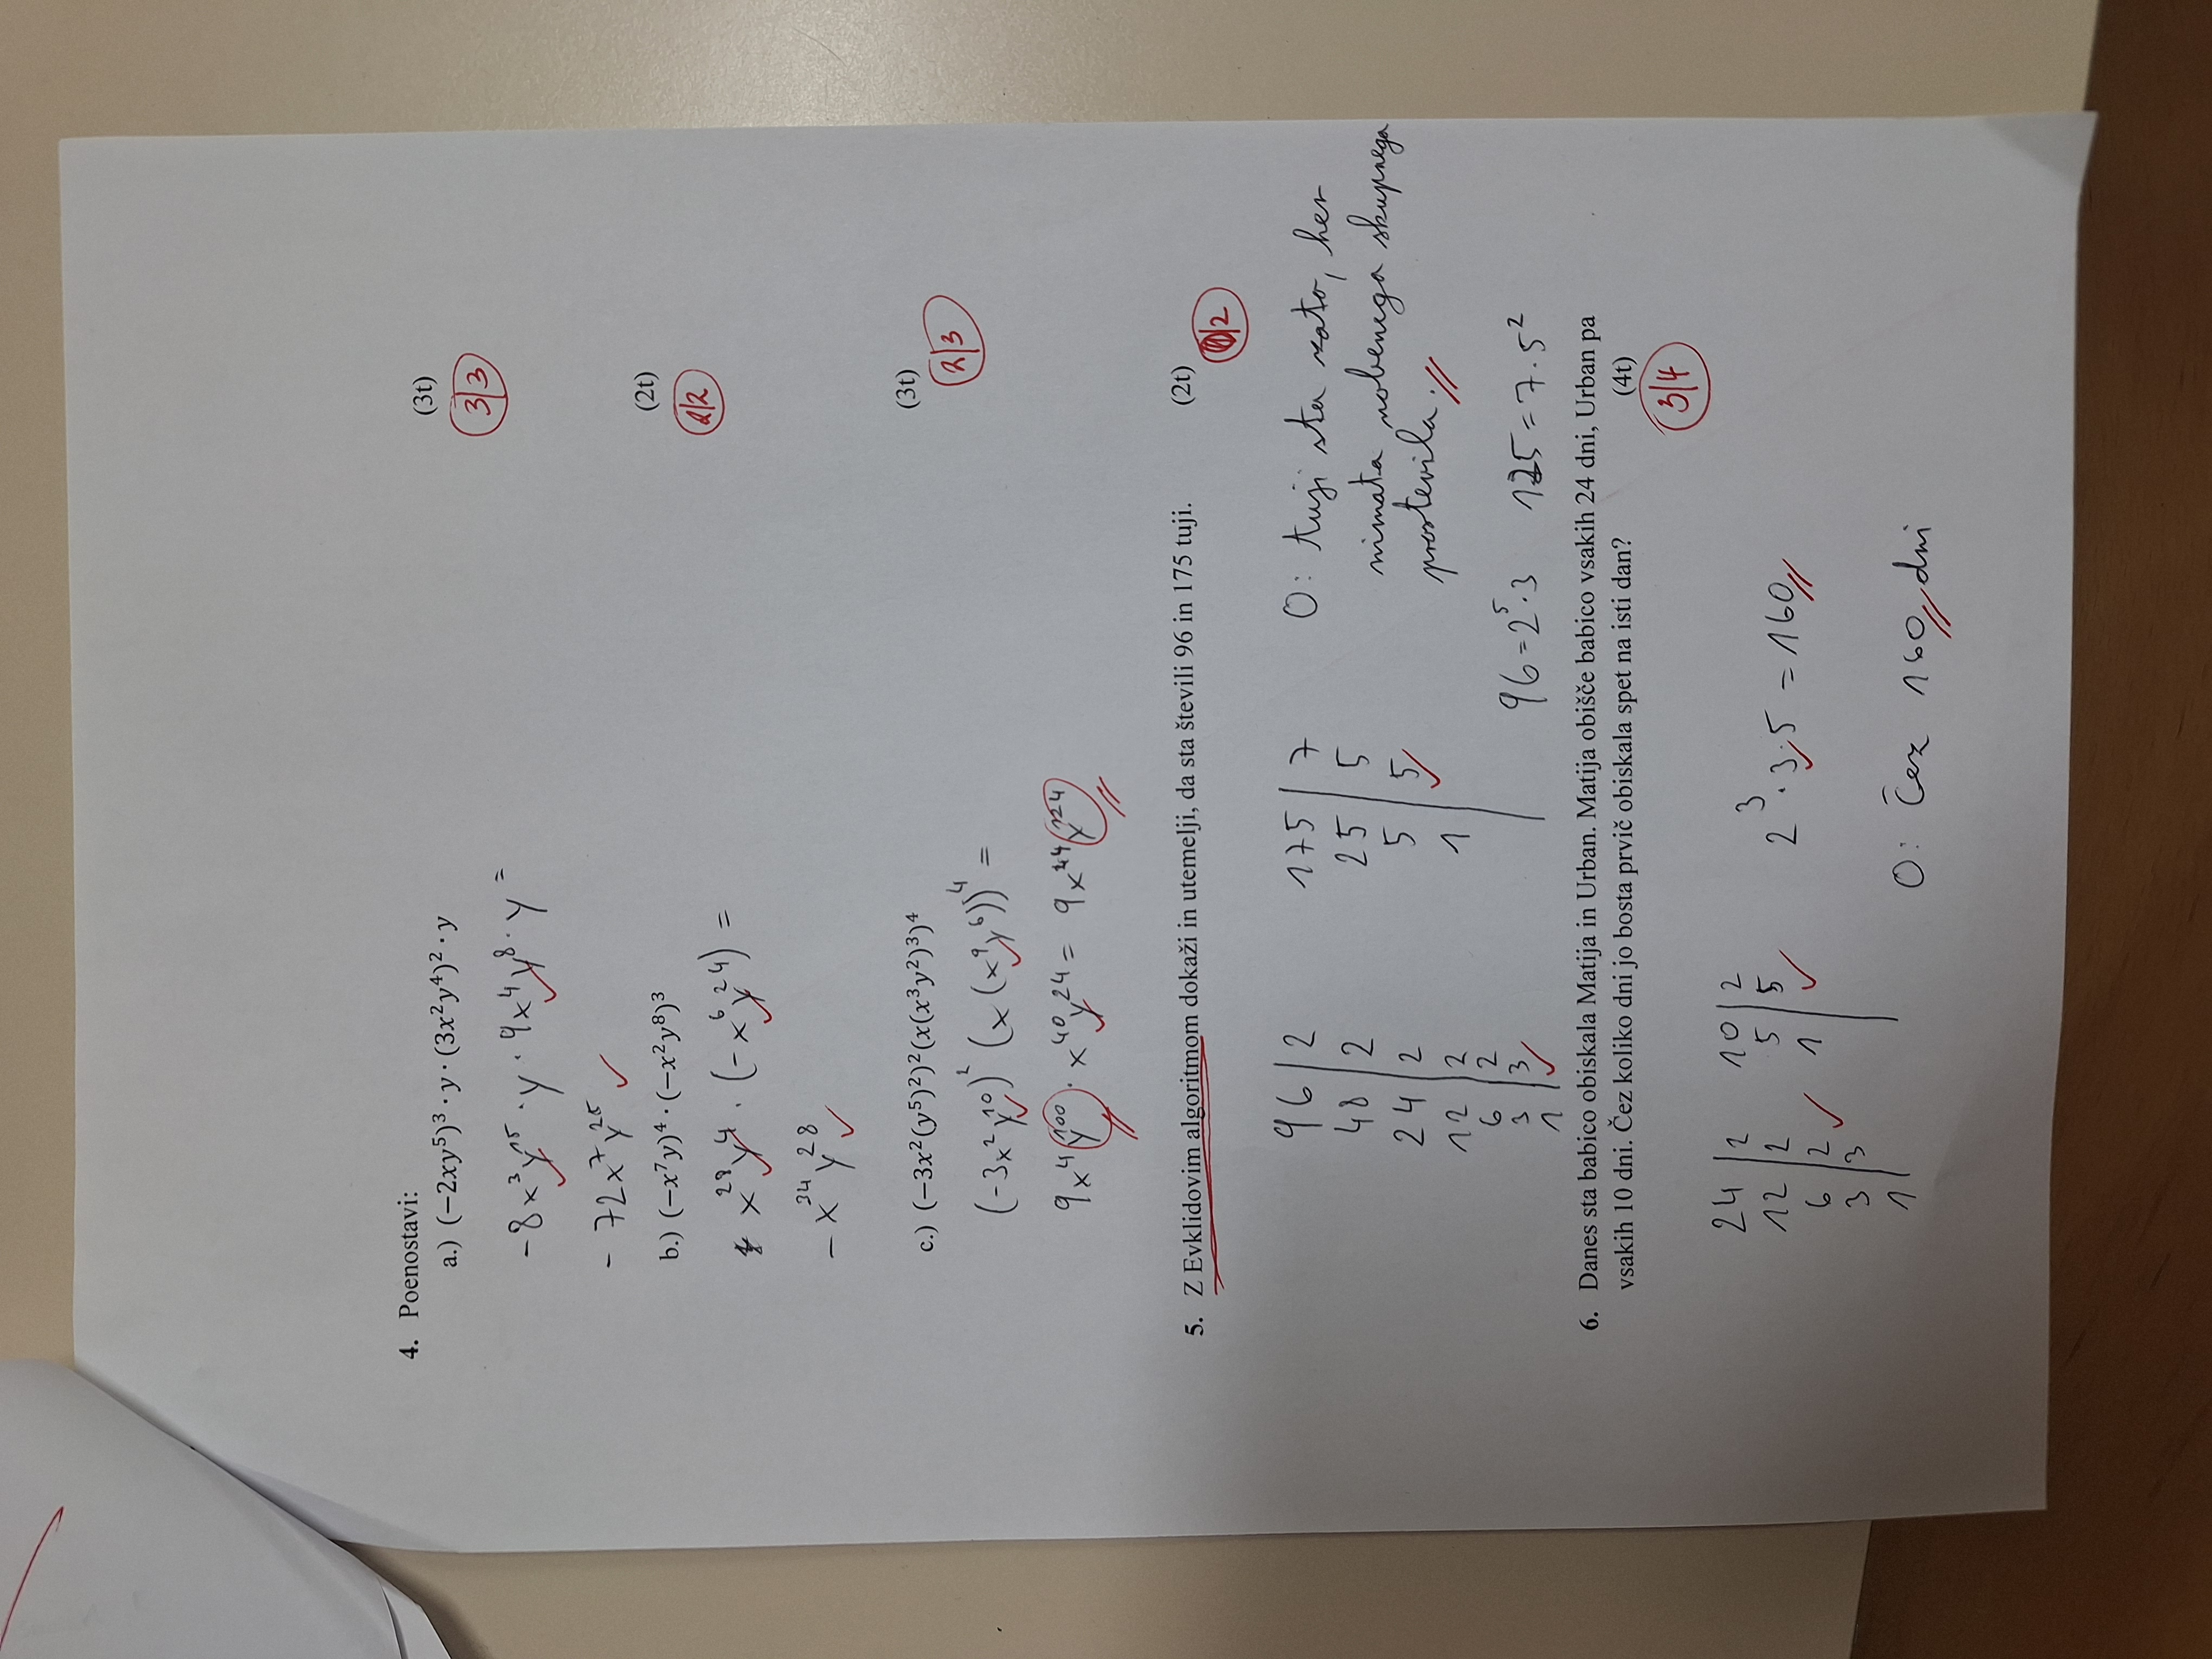 4. Poenostavi:
(3t)
a.) (−2xy⁵)³ · y · (3x²y⁴)² · y
3|3
-8x³y¹⁵ · y · 9x⁴y⁸ · y =
- 72x⁷y²⁵
(2t)
b.) (−x⁷y)⁴ · (−x²y⁸)³
2|2
x²⁸y⁴ · (-x⁶y²⁴) =
- x³⁴y²⁸
(3t)
c.) (−3x²(y⁵)²)²(x(x³y²)³)⁴
2|3
(-3x²y¹⁰)² (x (x⁹y⁶))⁴ =
9x⁴y¹⁰⁰ · x⁴⁰y²⁴ = 9x⁴⁴y¹²⁴
5. Z Evklidovim algoritmom dokaži in utemelji, da sta števili 96 in 175 tuji. (2t)
|2
96 | 2
48 | 2
24 | 2
12 | 2
6 | 2
3 | 3
1
175 | 7
25 | 5
5 | 5
1
O: tuji sta zato, ker
nimata nobenega skupnega
prostevila.
96 = 2⁵·3 175 = 7·5²
6. Danes sta babico obiskala Matija in Urban. Matija obišče babico vsakih 24 dni, Urban pa
vsakih 10 dni. Čez koliko dni jo bosta prvič obiskala spet na isti dan? (4t)
3|4
24 | 2
12 | 2
6 | 2
3 | 3
1
10 | 2
5 | 5
1
2³·3·5 = 160
O: Čez 160 dni